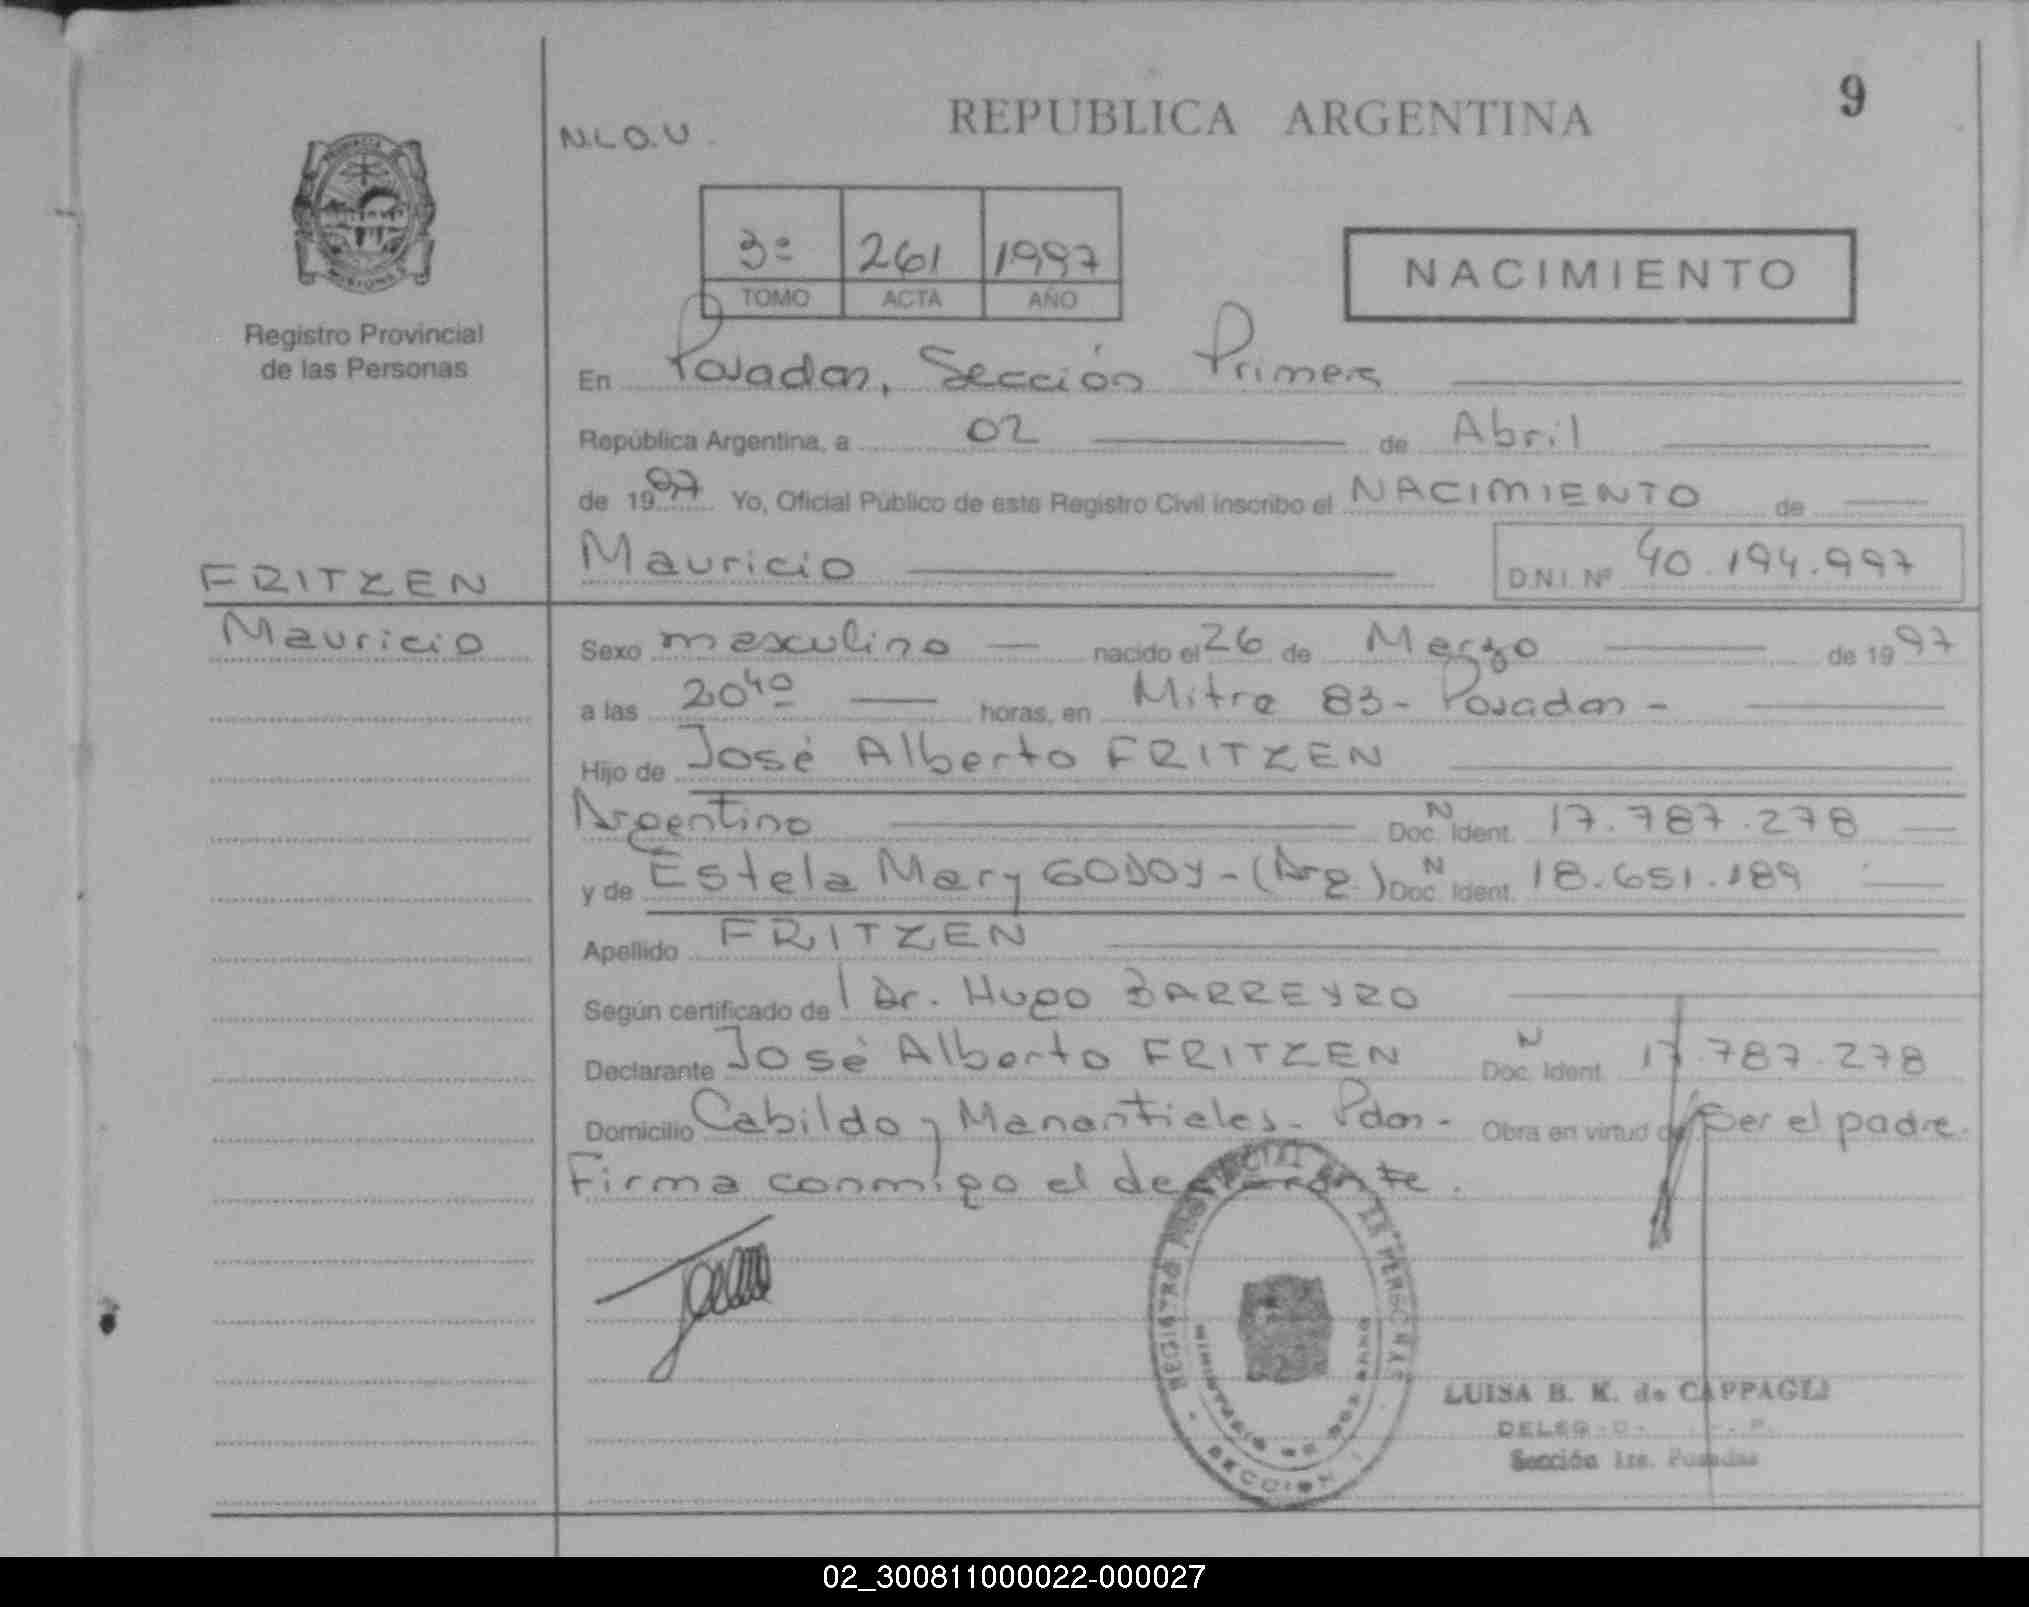 9
REPUBLICA ARGENTINA
N.L.O.U.
3º 261 1997
TOMO ACTA AÑO
NACIMIENTO
Registro Provincial
de las Personas
En Posadas, Sección Primera
República Argentina, a 02 de Abril
de 1997 Yo, Oficial Público de este Registro Civil inscribo el NACIMIENTO de
Mauricio D.N.I. Nº 40.194.997
FRITZEN
Mauricio
Sexo masculino nacido el 26 de Marzo de 1997
a las 20 40 horas, en Mitre 83 - Posadas -
Hijo de José Alberto FRITZEN
Argentino Doc. N Ident. 17.787.278
y de Estela Mary GODOY - (Arg.) Doc. N Ident. 18.651.189
Apellido FRITZEN
Según certificado de l Dr. Hugo BARREYRO
Declarante José Alberto FRITZEN Doc. N Ident. 17.787.278
Domicilio Cabildo y Manantiales - Pdas - Obra en virtud de ser el padre.
Firma conmigo el declarante.
REGISTRO PROVINCIAL DE LAS PERSONAS
MINISTERIO DE
SECCION
LUISA B. K. de CAPPAGLI
Sección 1ra. Posadas
02_300811000022-000027